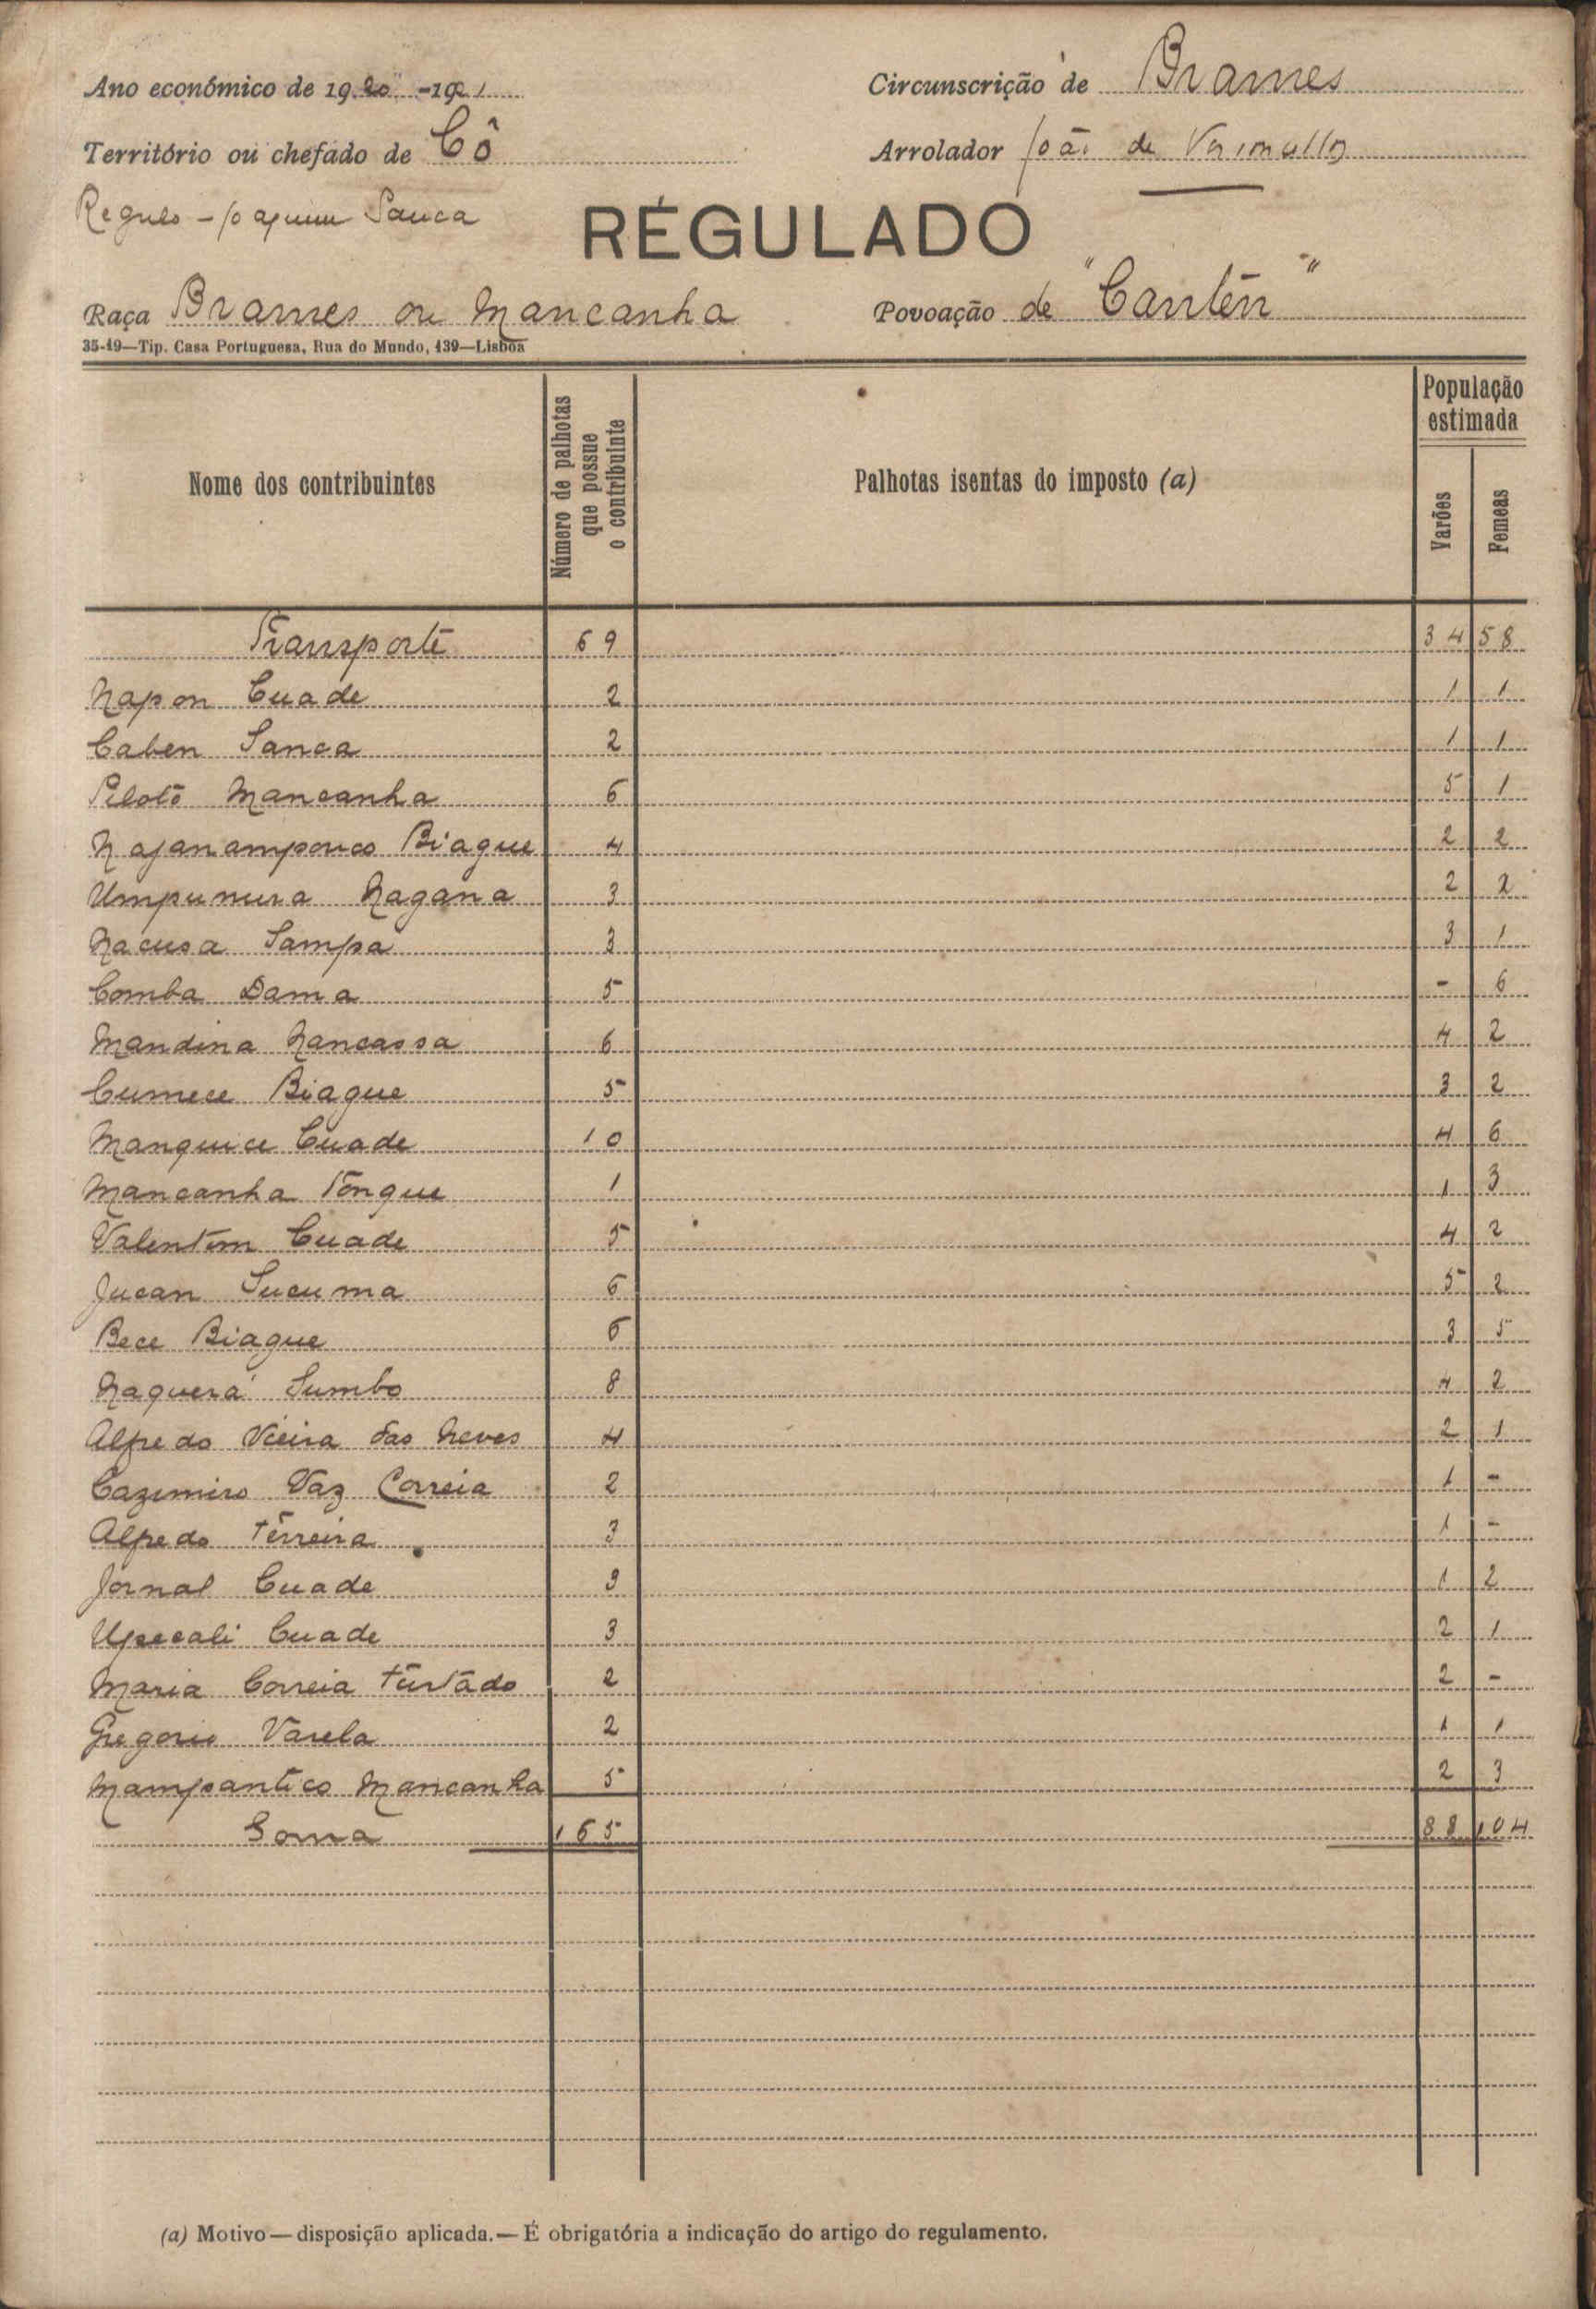 Ano económico de 1920-1921
Circunscrição de Brames
Território ou chefado de Cô
Arrolador João de
Regulo - Joaquim Sanca
RÉGULADO
Raça Brames ou Mancanha
Povoação de "Cantēn"
35-19—Tip. Casa Portuguesa, Rua do Mundo, 139—Lisboa
Nome dos contribuintes
Número de palhotas que possue o contribuinte
Palhotas isentas do imposto (a)
População estimada
Varões
Femeas
Transporte 69 34 58
Napon Cuade 2 1 1
Caben Sanca 2 1 1
Pilotō Mancanha 6 5 1
Najanampouco Biague 4 2 2
Umpunura Nagana 3 2 2
Nacusa Sampa 3 3 1
Comba Dama 5 - 6
Mandina Nancassa 6 4 2
Cumece Biague 5 3 2
Manquice Cuade 10 4 6
Mancanha Tongue 1 1 3
Valentim Cuade 5 4 2
Jucan Sucuma 6 5 2
Bece Biague 6 3 5
Naquerá Sumbo 8 4 2
Alfredo Vieira das Neves 4 2 1
Cazimiro Vaz Correia 2 1 -
Alfredo Ferreira 3 1 -
Jornal Cuade 3 1 2
Upecali Cuade 3 2 1
Maria Correia Furtado 2 2 -
Gregorio Varela 2 1 1
Mampantico Mancanha 5 2 3
Soma 165 88 104
(a) Motivo—disposição aplicada.—É obrigatória a indicação do artigo do regulamento.